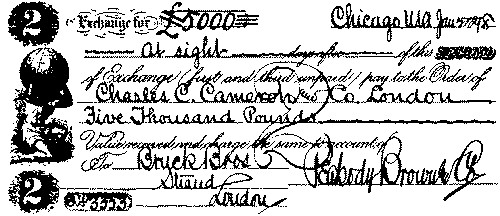 2 Exchange for £5000 Chicago, USA Jan 5 1878
At sight days after of this SECOND
of Exchange (first and third unpaid) pay to the Order of
Charles C. Cameron & Co. London
Five Thousand Pounds
Value received and charge the same to account of
To Bryck Bros Peabody Brown & Co
Strand
2 London